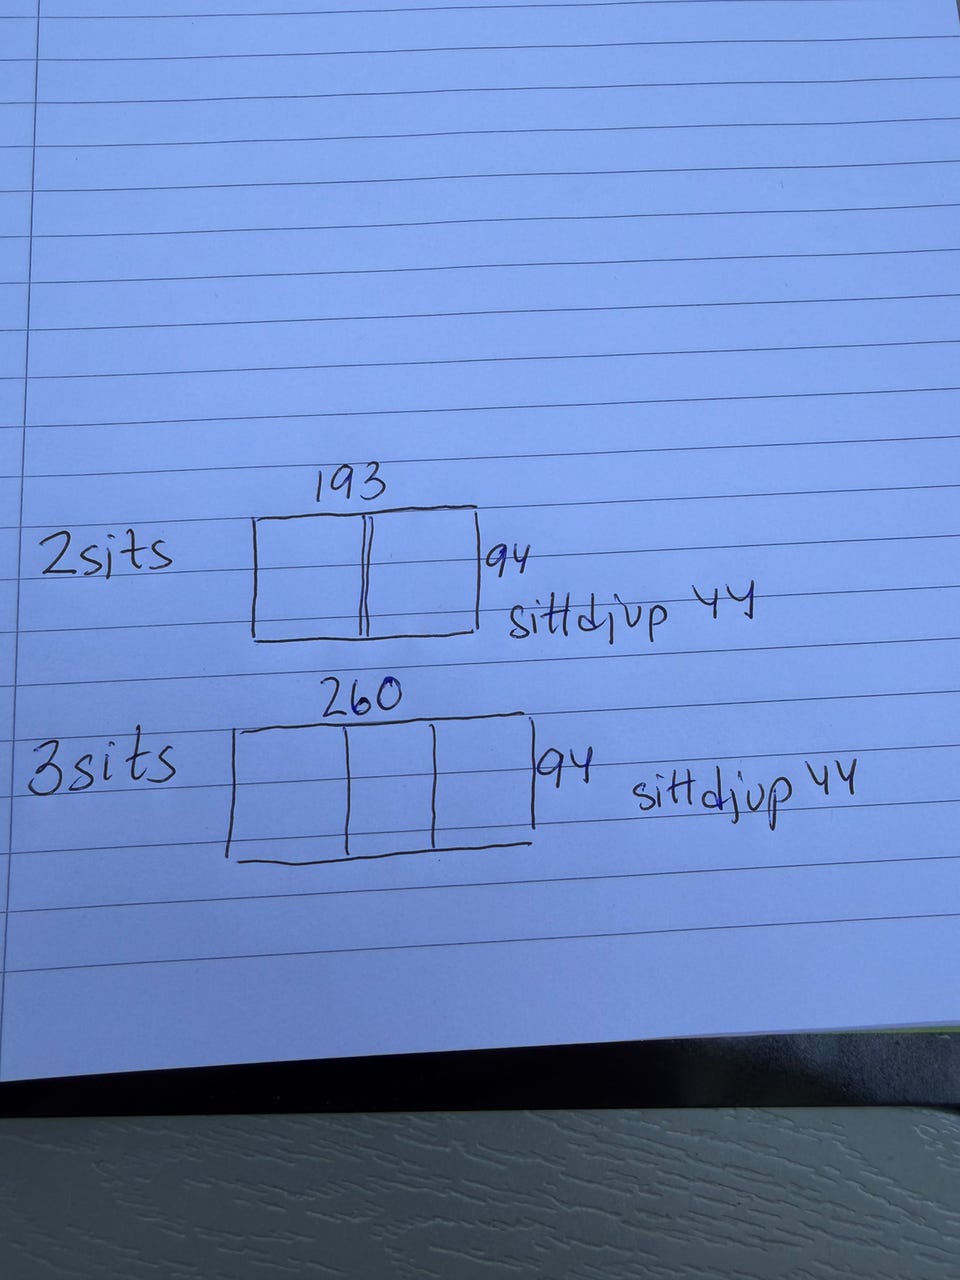 193
2sits
94
sittdjup 44
260
3sits
94
sittdjup 44